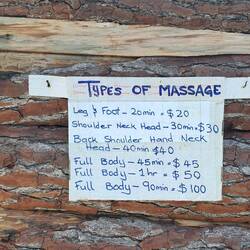 TYPES OF MASSAGE
Leg & Foot - 20min - $20
Shoulder Neck Head - 30min - $30
Back Shoulder Hand Neck
Head - 40min $40
Full Body - 45min - $45
Full Body - 1hr - $50
Full Body - 90min - $100